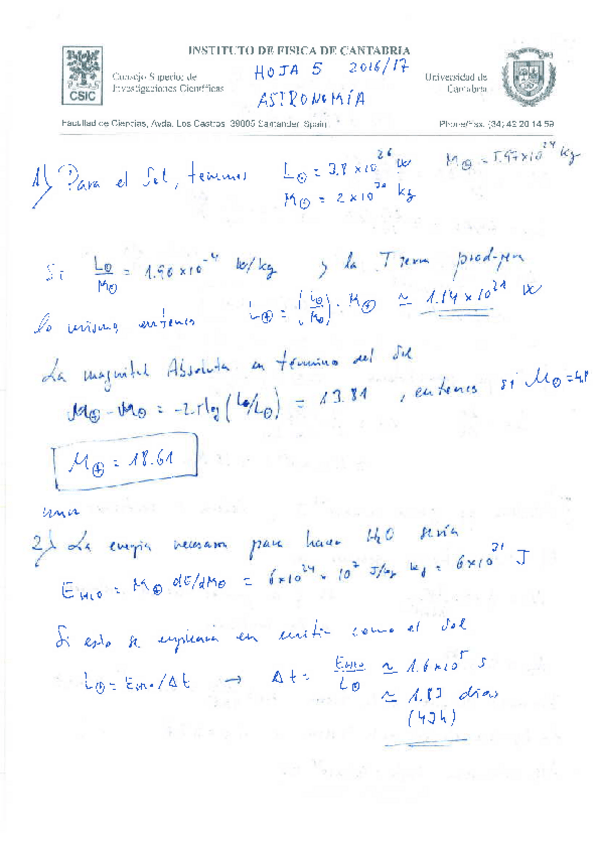 INSTITUTO DE FISICA DE CANTABRIA
HOJA 5 2016/17
ASTRONOMÍA
CSIC
Consejo Superior de
Investigaciones Científicas
Universidad de
Cantabria
Facultad de Ciencias, Avda. Los Castros, 39005 Santander, Spain
Phone/Fax: (34) 42 20 14 59
1) Para el Sol, tenemos L⊙ = 3.8 × 10^26 W M⊕ = 5.97×10^24 kg
M⊙ = 2 × 10^30 kg
Si L⊙/M⊙ = 1.90 × 10^-4 W/kg y la Tierra
lo mismo entonces L⊕ = (L⊙/M⊙) · M⊕ ≃ 1.14 × 10^21 W
La magnitud Absoluta en término del Sol
M⊕ - M⊙ = -2.5 log (L⊕/L⊙) = 13.81, entonces si M⊙ = 4.8
M⊕ = 18.61
2) La energía necesaria para hacer H2O sería
E H2O = M⊕ dE/dM⊕ = 6×10^24 × 10^7 J/kg kg = 6×10^31 J
Si esto se emplearía en emitir como el Sol
L⊙ = E H2O/Δt → Δt = E H2O/L⊙ ≃ 1.6×10^5 s
≃ 1.83 días
(43h)